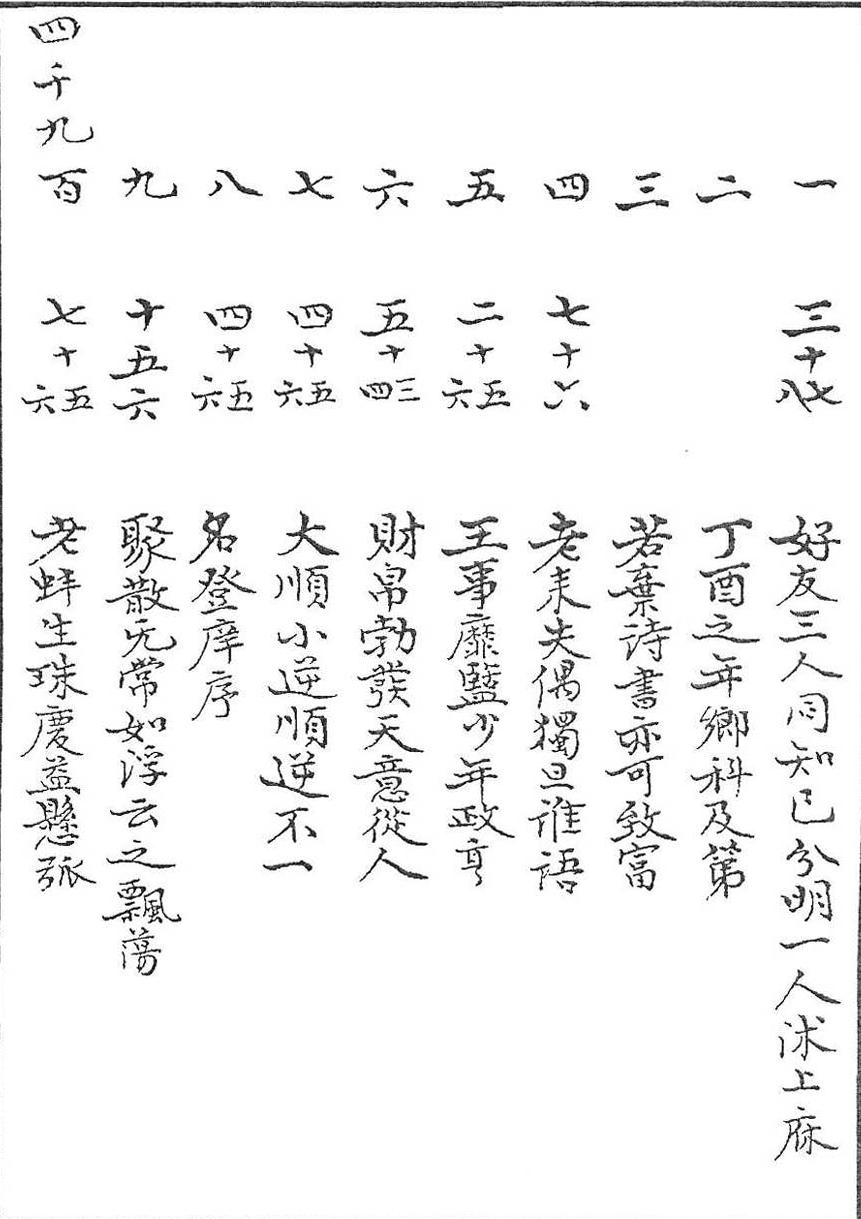 一 三十七八 好友三人同知已分明一人沭上庥
二 丁酉之年鄉科及第
三 若棄诗書亦可致富
四 七十六 老来失偶獨旦谁语
五 二十五六 王事靡盬少年政亨
六 五十三四 財帛勃發天意從人
七 四十五六 大順小逆順逆不一
八 四十五六 名登庠序
九 十五六 聚散无常如浮云之飄蕩
四千九百 七十五六 老蚌生珠慶益懸弧